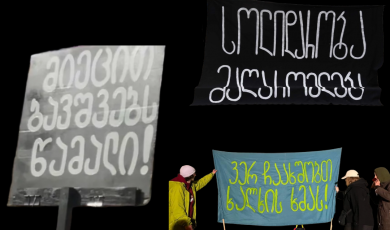 მიეცით
ბავშვებს
წამალი!
სოლიდარობა
მაღაროელებს
ვერ ჩაახშობთ
ხალხის ხმას!